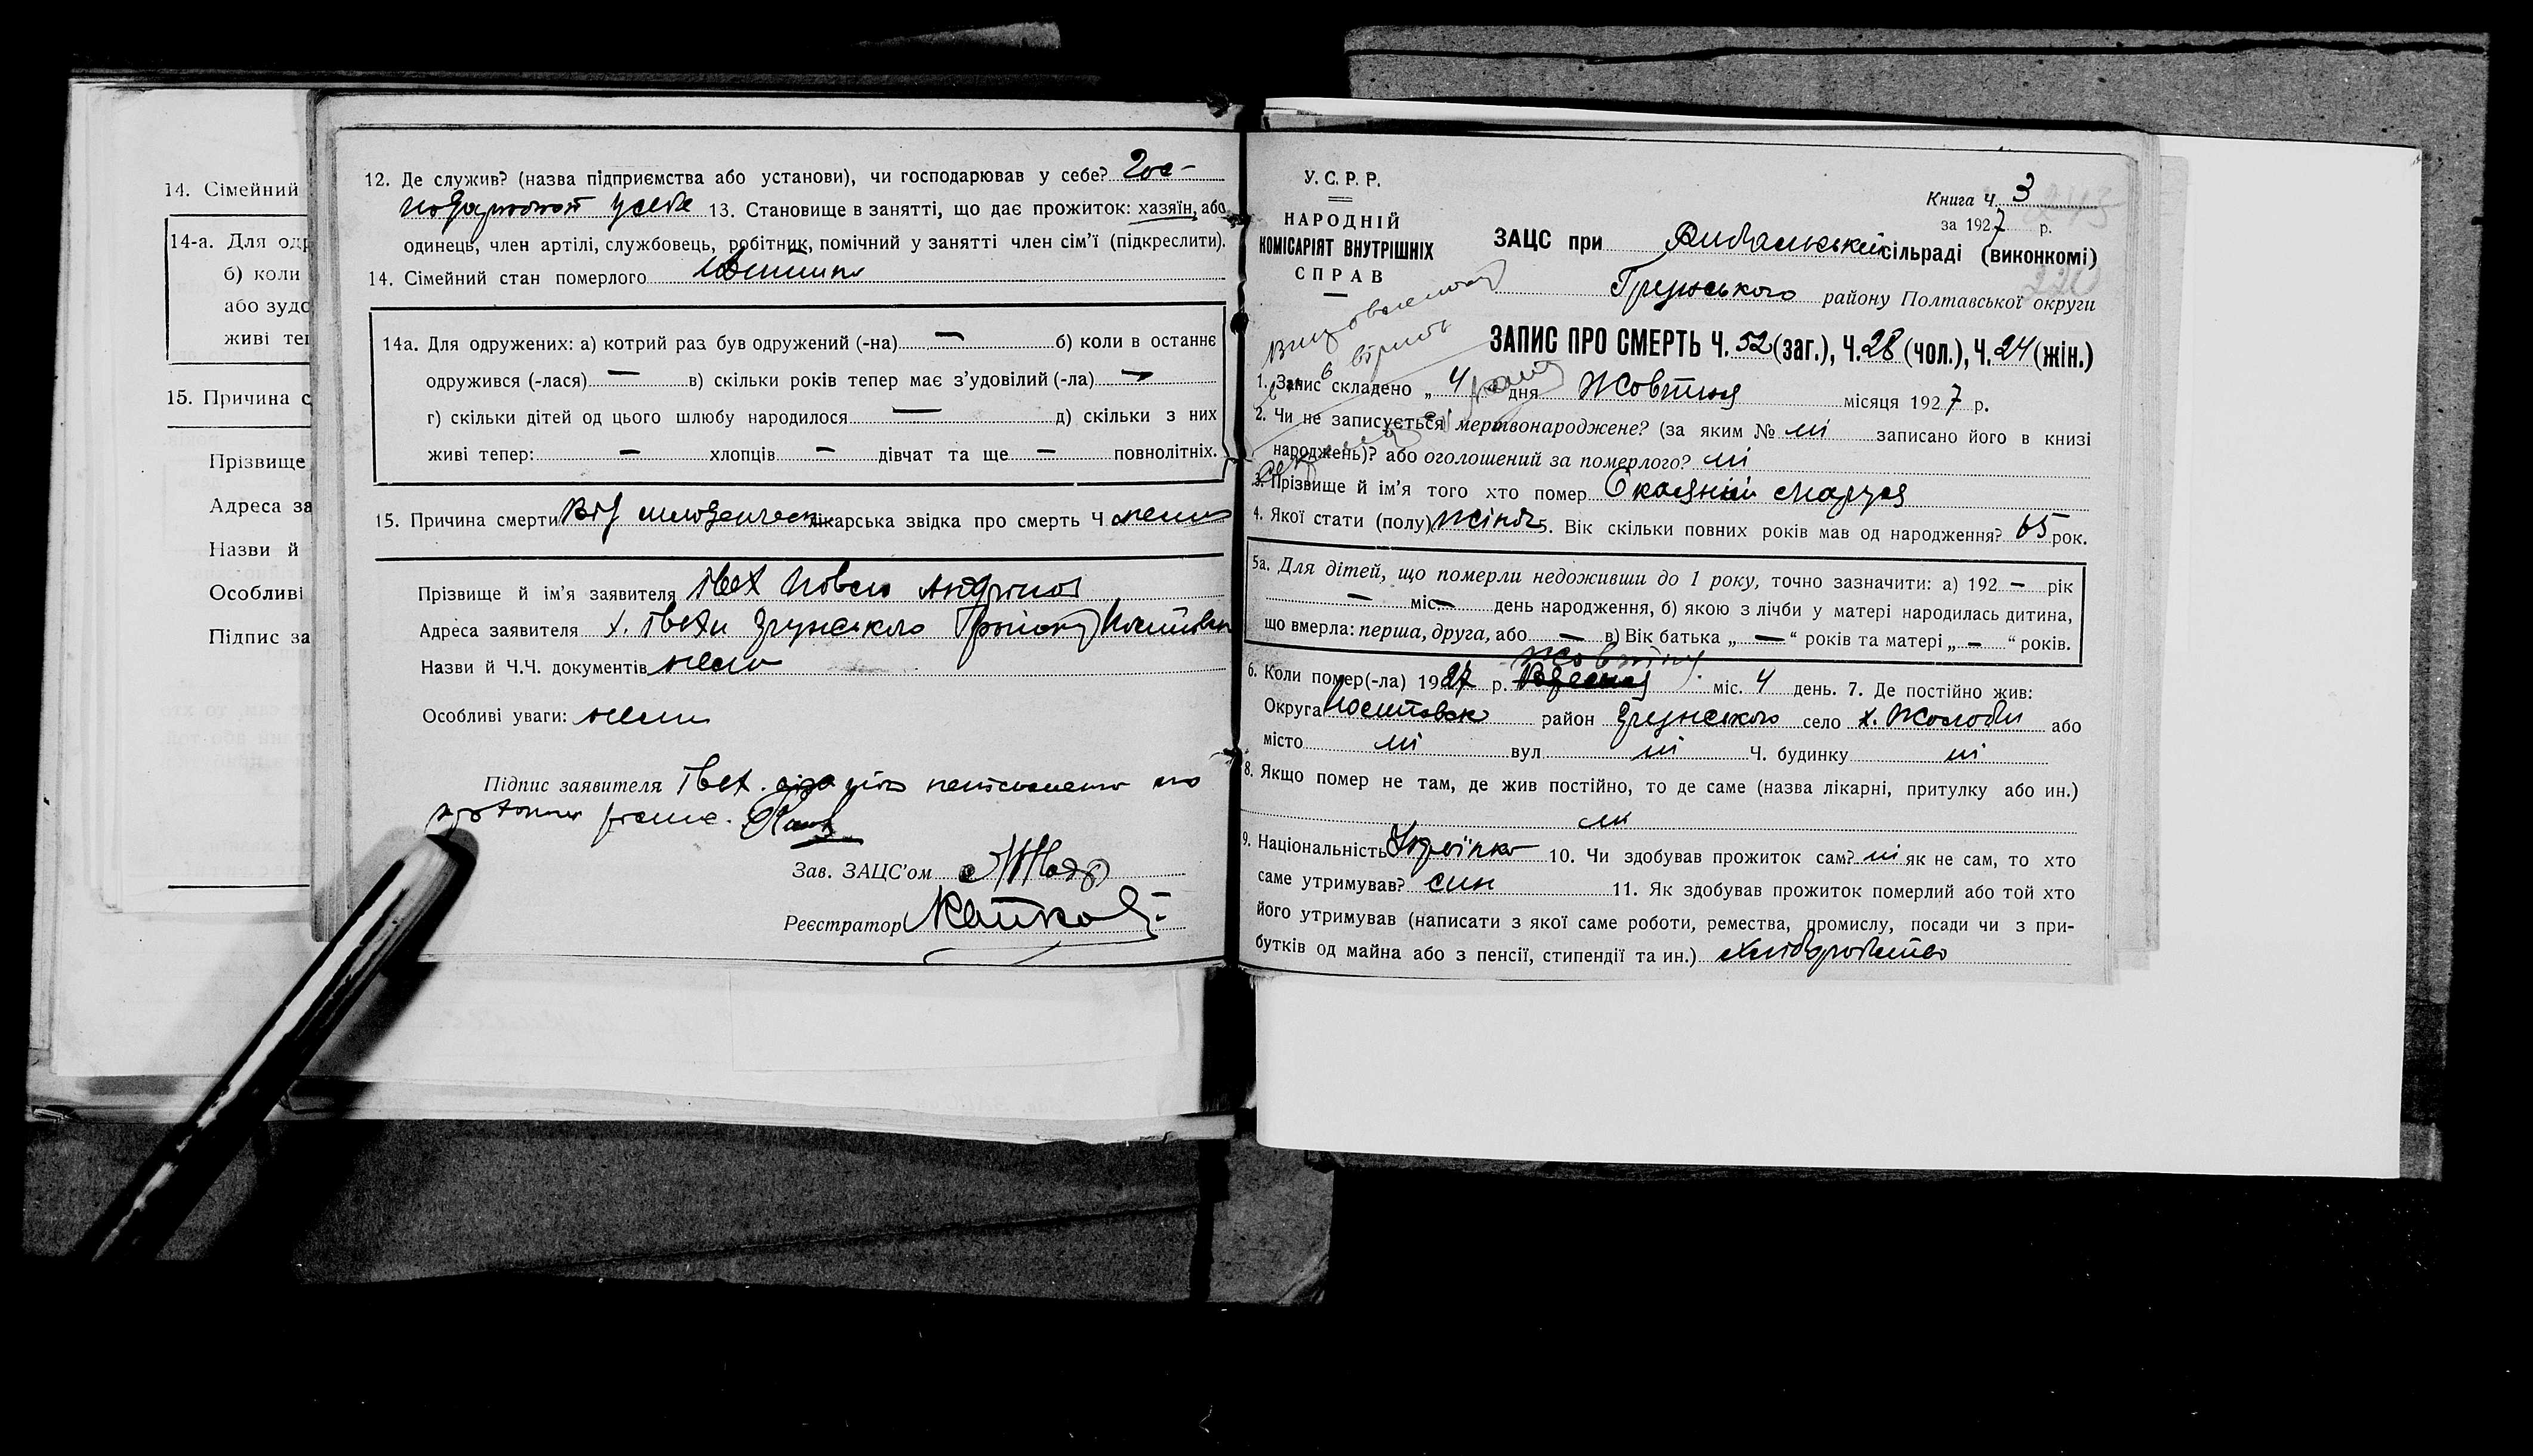 14. Сімейний
14-а. Для одр
б) коли
або зудо
живі теп
15. Причина с
Прізвище
Адреса за
Назви й
Особливі
Підпис за
12. Де служив? (назва підприємства або установи), чи господарював у себе? Гос-
у себе 13. Становище в занятті, що дає прожиток: хазяїн, або
одинець, член артілі, службовець, робітник, помічний у занятті член сім'ї (підкреслити).
14. Сімейний стан померлого
14а. Для одружених: а) котрий раз був одружений (-на) — б) коли в останнє
одружився (-лася) — в) скільки років тепер має з'удовілий (-ла) —
г) скільки дітей од цього шлюбу народилося — д) скільки з них
живі тепер: — хлопців — дівчат та ще — повнолітніх.
15. Причина смерти Від лікарська звідка про смерть Ч нема
Прізвище й ім'я заявителя
Адреса заявителя х.
Назви й Ч.Ч. документів нема
Особливі уваги: нема
Підпис заявителя
Зав. ЗАЦС'ом
Реєстратор
У. С. Р. Р.
НАРОДНІЙ
КОМІСАРІЯТ ВНУТРІШНІХ
СПРАВ
Книга Ч. 3
за 1927 р.
ЗАЦС при сільраді (виконкомі)
Грунського району Полтавської округи
ЗАПИС ПРО СМЕРТЬ Ч. 52 (заг.), Ч. 28 (чол.), Ч. 24 (жін.)
1. Запис складено „ 4 дня Жовтня місяця 1927 р.
2. Чи не записується мертвонароджене? (за яким № ні записано його в книзі
народжень)? або оголошений за померлого? ні
3. Прізвище й ім'я того хто помер Маруся
4. Якої стати (полу) жіноч 5. Вік скільки повних років мав од народження? 65 рок.
5а. Для дітей, що померли недоживши до 1 року, точно зазначити: а) 192 — рік
— міс — день народження, б) якою з лічби у матері народилась дитина,
що вмерла: перша, друга, або — в) Вік батька „ — “ років та матері „ — “ років.
Жовтня
6. Коли помер(-ла) 1927 р. міс. 4 день. 7. Де постійно жив:
Округа Полтавськ район Грунського село х. або
місто ні вул ні Ч. будинку ні
8. Якщо помер не там, де жив постійно, то де саме (назва лікарні, притулку або ин.)
ні
9. Національність Українка 10. Чи здобував прожиток сам? ні як не сам, то хто
саме утримував? син 11. Як здобував прожиток померлий або той хто
його утримував (написати з якої саме роботи, ремества, промислу, посади чи з при-
бутків од майна або з пенсії, стипендії та ин.) Хліборобство